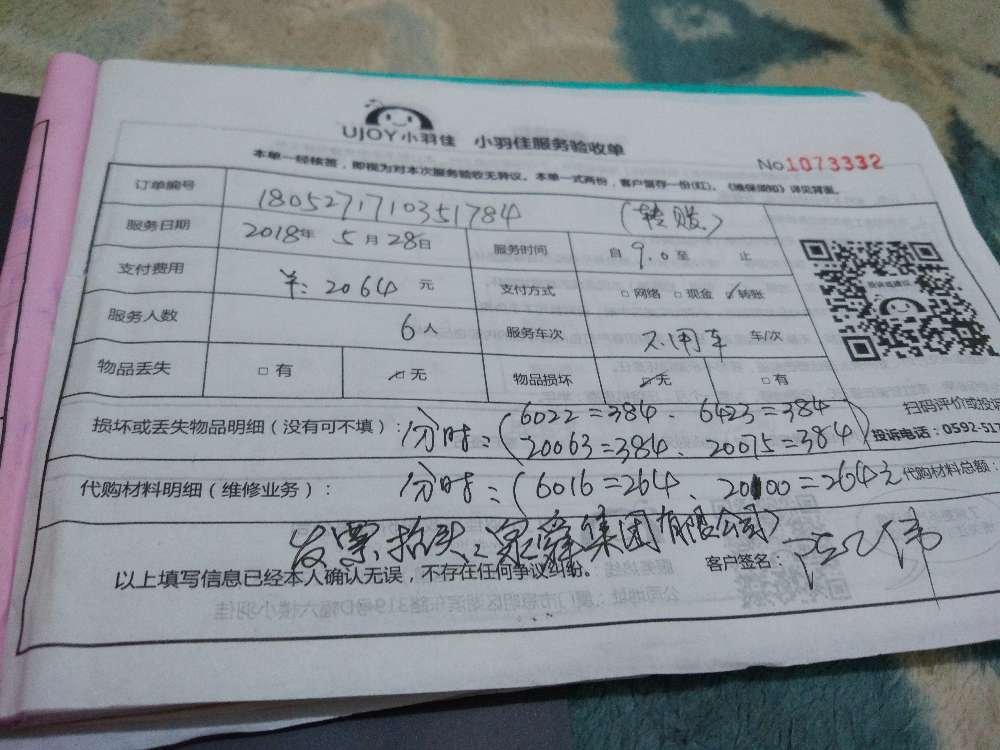 UJOY小羽佳 小羽佳服务验收单
No.1073332
本单一经核签，即视为对本次服务验收无异议。本单一式两份，客户留存一份(红)。《维保须知》详见背面。
订单编号 1805271710351784 (转账)
服务日期 2018年 5月28日 服务时间 自 9.0 至 止
支付费用 羊: 2064 元 支付方式 □网络 □现金 ☑转账
服务人数 6人 服务车次 不用车 车/次
物品丢失 □有 ☑无 物品损坏 ☑无 □有
扫码评价或投诉
损坏或丢失物品明细（没有可不填）: 分时:(6022=384、6423=384
20063=384、20075=384) 投诉电话：0592-517
代购材料明细（维修业务）: 分时:(6016=264、20100=264元 代购材料总额：
发票抬头:泉舜集团有限公司)
以上填写信息已经本人确认无误，不存在任何争议纠纷。 客户签名: